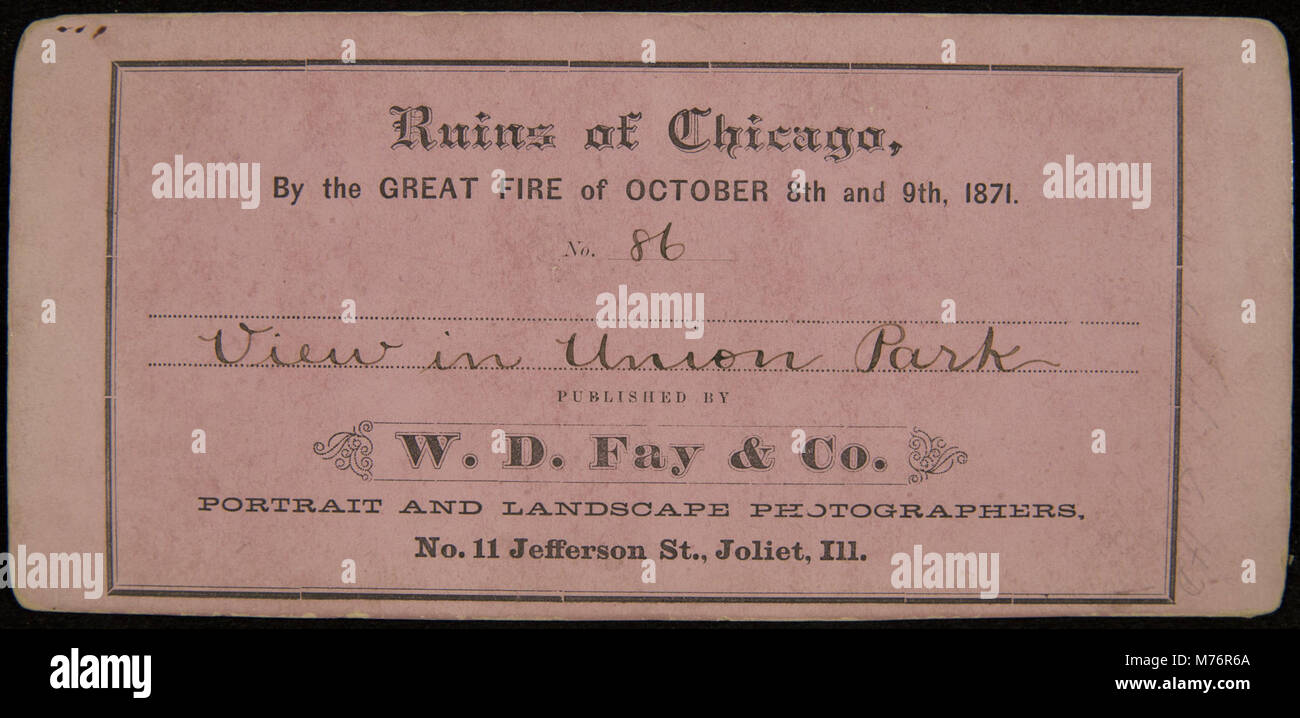 Ruins of Chicago,
By the GREAT FIRE of OCTOBER 8th and 9th, 1871.
No. 86
View in Union Park
PUBLISHED BY
W. D. Fay & Co.
PORTRAIT AND LANDSCAPE PHOTOGRAPHERS,
No. 11 Jefferson St., Joliet, Ill.
alamy
alamy
alamy
alamy
alamy
alamy
Image ID: M76R6A
www.alamy.com